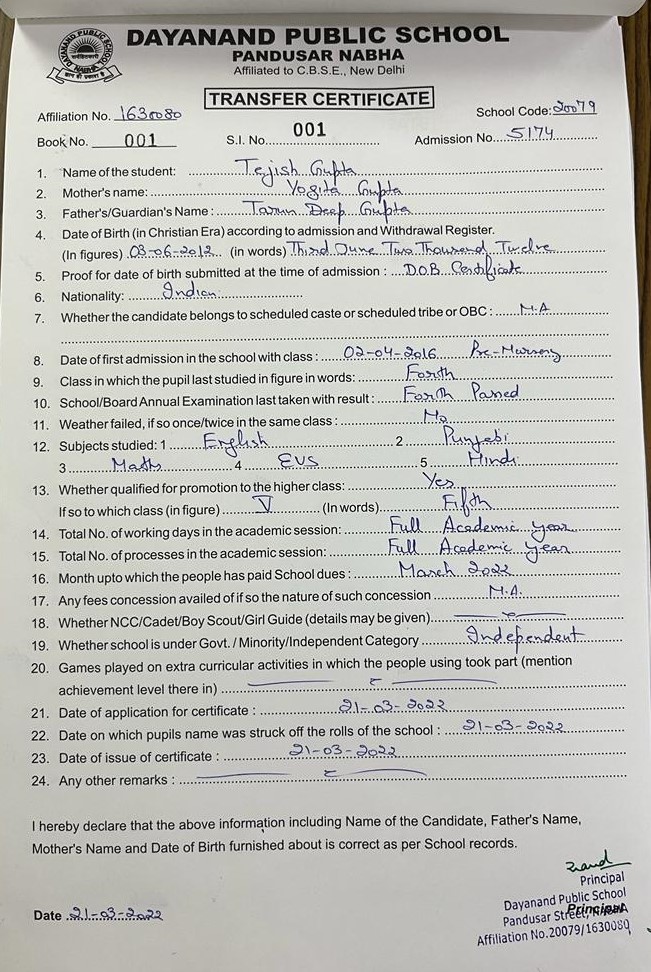 DAYANAND PUBLIC SCHOOL
PANDUSAR NABHA
Affiliated to C.B.S.E., New Delhi
TRANSFER CERTIFICATE
Affiliation No. 1630080 School Code: 20079
Book No. 001 S.I. No. 001 Admission No. 5174
1. Name of the student: Tejish Gupta
2. Mother's name: Yogita Gupta
3. Father's/Guardian's Name : Tarun Deep Gupta
4. Date of Birth (in Christian Era) according to admission and Withdrawal Register.
(In figures) 03-06-2012 (in words) Third June Two Thousand Twelve
5. Proof for date of birth submitted at the time of admission : D.O.B. Certificate
6. Nationality: Indian
7. Whether the candidate belongs to scheduled caste or scheduled tribe or OBC : N.A
8. Date of first admission in the school with class : 02-04-2016 Pre-Nursery
9. Class in which the pupil last studied in figure in words: Forth
10. School/Board Annual Examination last taken with result : Forth Passed
11. Weather failed, if so once/twice in the same class : No
12. Subjects studied: 1 English 2 Punjabi
3 Maths 4 EVS 5 Hindi
13. Whether qualified for promotion to the higher class: Yes
If so to which class (in figure) V (In words) Fifth
14. Total No. of working days in the academic session: Full Academic year
15. Total No. of processes in the academic session: Full Academic year
16. Month upto which the people has paid School dues : March 2022
17. Any fees concession availed of if so the nature of such concession N.A.
18. Whether NCC/Cadet/Boy Scout/Girl Guide (details may be given)
19. Whether school is under Govt. / Minority/Independent Category Independent
20. Games played on extra curricular activities in which the people using took part (mention
achievement level there in)
21. Date of application for certificate : 21-03-2022
22. Date on which pupils name was struck off the rolls of the school : 21-03-2022
23. Date of issue of certificate : 21-03-2022
24. Any other remarks :
I hereby declare that the above information including Name of the Candidate, Father's Name,
Mother's Name and Date of Birth furnished about is correct as per School records.
Principal
Dayanand Public School
Pandusar Street, Principal
Date 21-03-2022 Affiliation No.20079/1630080